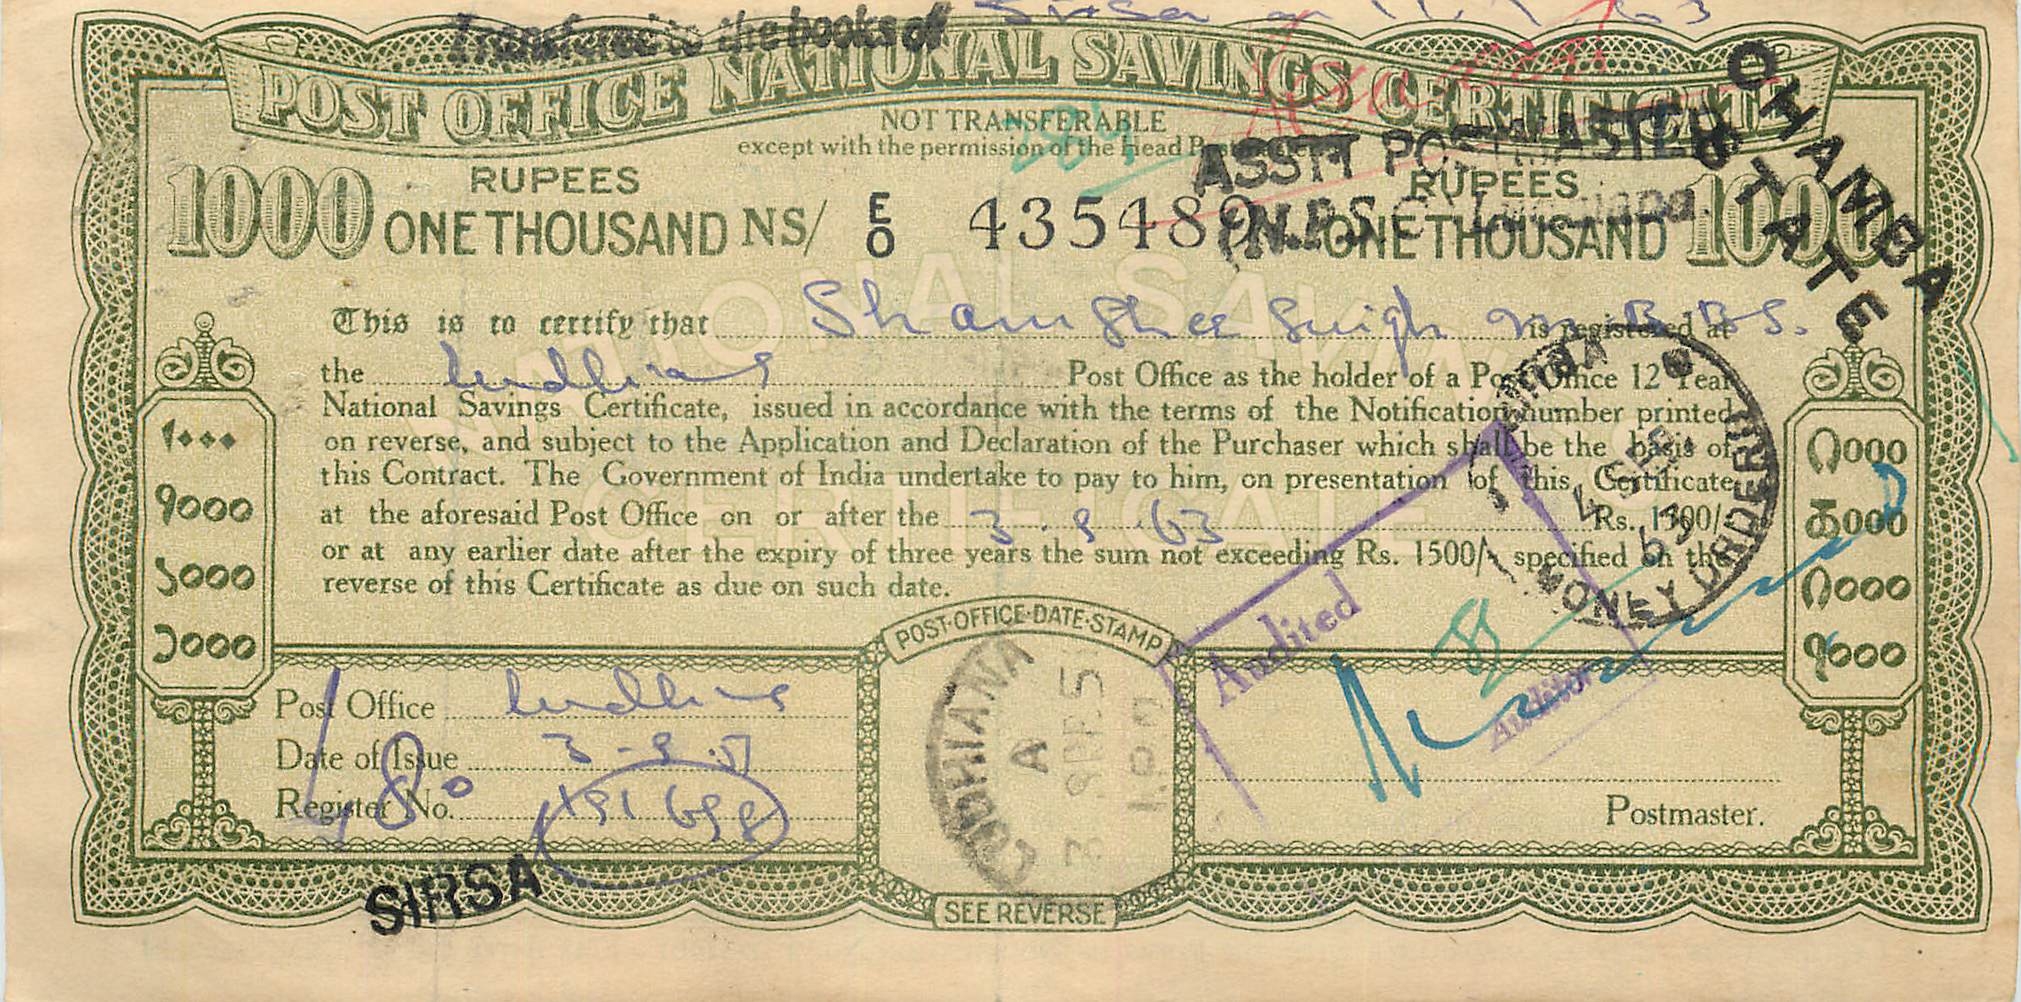 Transferred to the books of Sirsa
POST OFFICE NATIONAL SAVINGS CERTIFICATE
NOT TRANSFERABLE
except with the permission of the Head
ASSTT POSTMASTER
CHAMBA
STATE
1000 RUPEES ONE THOUSAND NS/ EO 435489 RUPEES ONE THOUSAND 1000
This is to certify that Sham Sher Singh M.B.B.S. is registered at
the Ludhiana Post Office as the holder of a Post Office 12 Year
National Savings Certificate, issued in accordance with the terms of the Notification number printed
on reverse, and subject to the Application and Declaration of the Purchaser which shall be the basis of
this Contract. The Government of India undertake to pay to him, on presentation of this Certificate
at the aforesaid Post Office on or after the 3.9.63 Rs. 1500/-
or at any earlier date after the expiry of three years the sum not exceeding Rs. 1500/- specified on the
reverse of this Certificate as due on such date.
۱۰۰۰
१०००
১০০০
POST·OFFICE·DATE·STAMP
LUDHIANA
A
3 SEP 5
MONEY ORDER
4 SEP
63
Audited
Auditor
Post Office Ludhiana
Date of Issue 3-9-51
Register No.
Postmaster.
SIRSA
SEE REVERSE